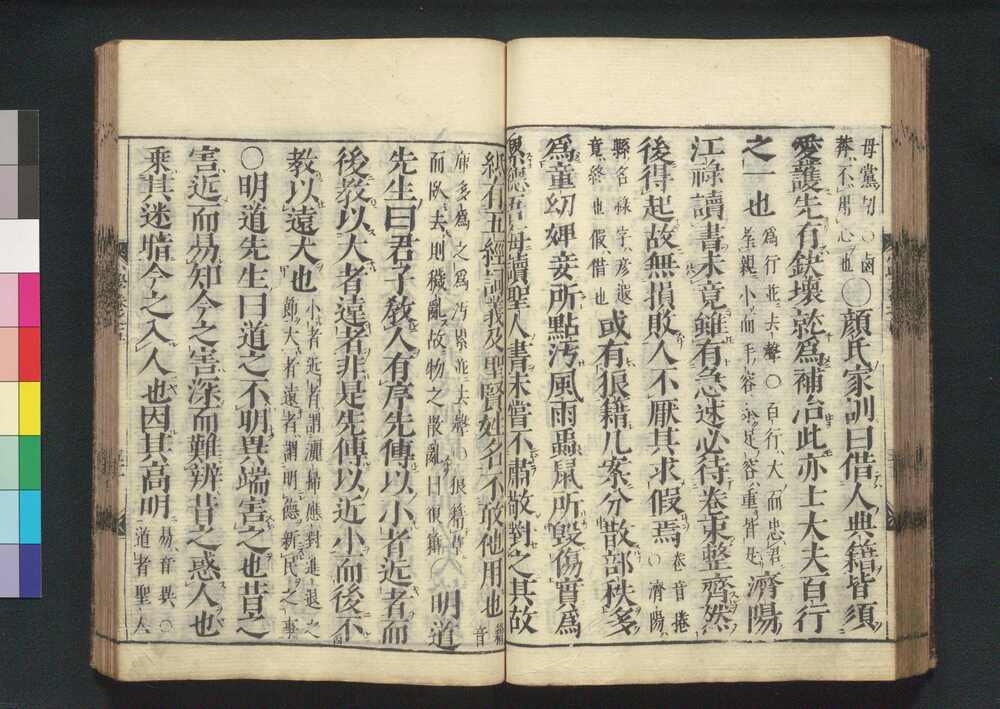 母黨切○鹵
莽不用心也○顔氏家訓曰借人典籍皆須
愛護先有缺壞就爲補治此亦士大夫百行
之一也爲行並去聲○百行大而忠君
孝親小而手容恭足容重皆是濟陽
江祿讀書未竟雖有急速必待卷束整齊然
後得起故無損敗人不厭其求假焉卷音捲
○濟陽
縣名祿字彦遐
竟終也假借也或有狼籍几案分散部秩多
爲童幼婢妾所點汚風雨蟲鼠所毀傷實爲
累德吾每讀聖人書未嘗不肅敬對之其故
紙有五經詞義及聖賢姓名不敢他用也音
爲之爲汚累並去聲○狼籍草
而臥去則穢亂故物之散亂曰狼籍明道
先生曰君子敎人有序先傳以小者近者而
後敎以大者遠者非是先傳以近小而後不
敎以遠大也小者近者謂灑掃應對進退之
節大者遠者謂明德新民之事
○明道先生曰道之不明異端害之也昔之
害近而易知今之害深而難辨昔之惑人也
乘其迷暗今之入人也因其高明易音異○
道者聖人